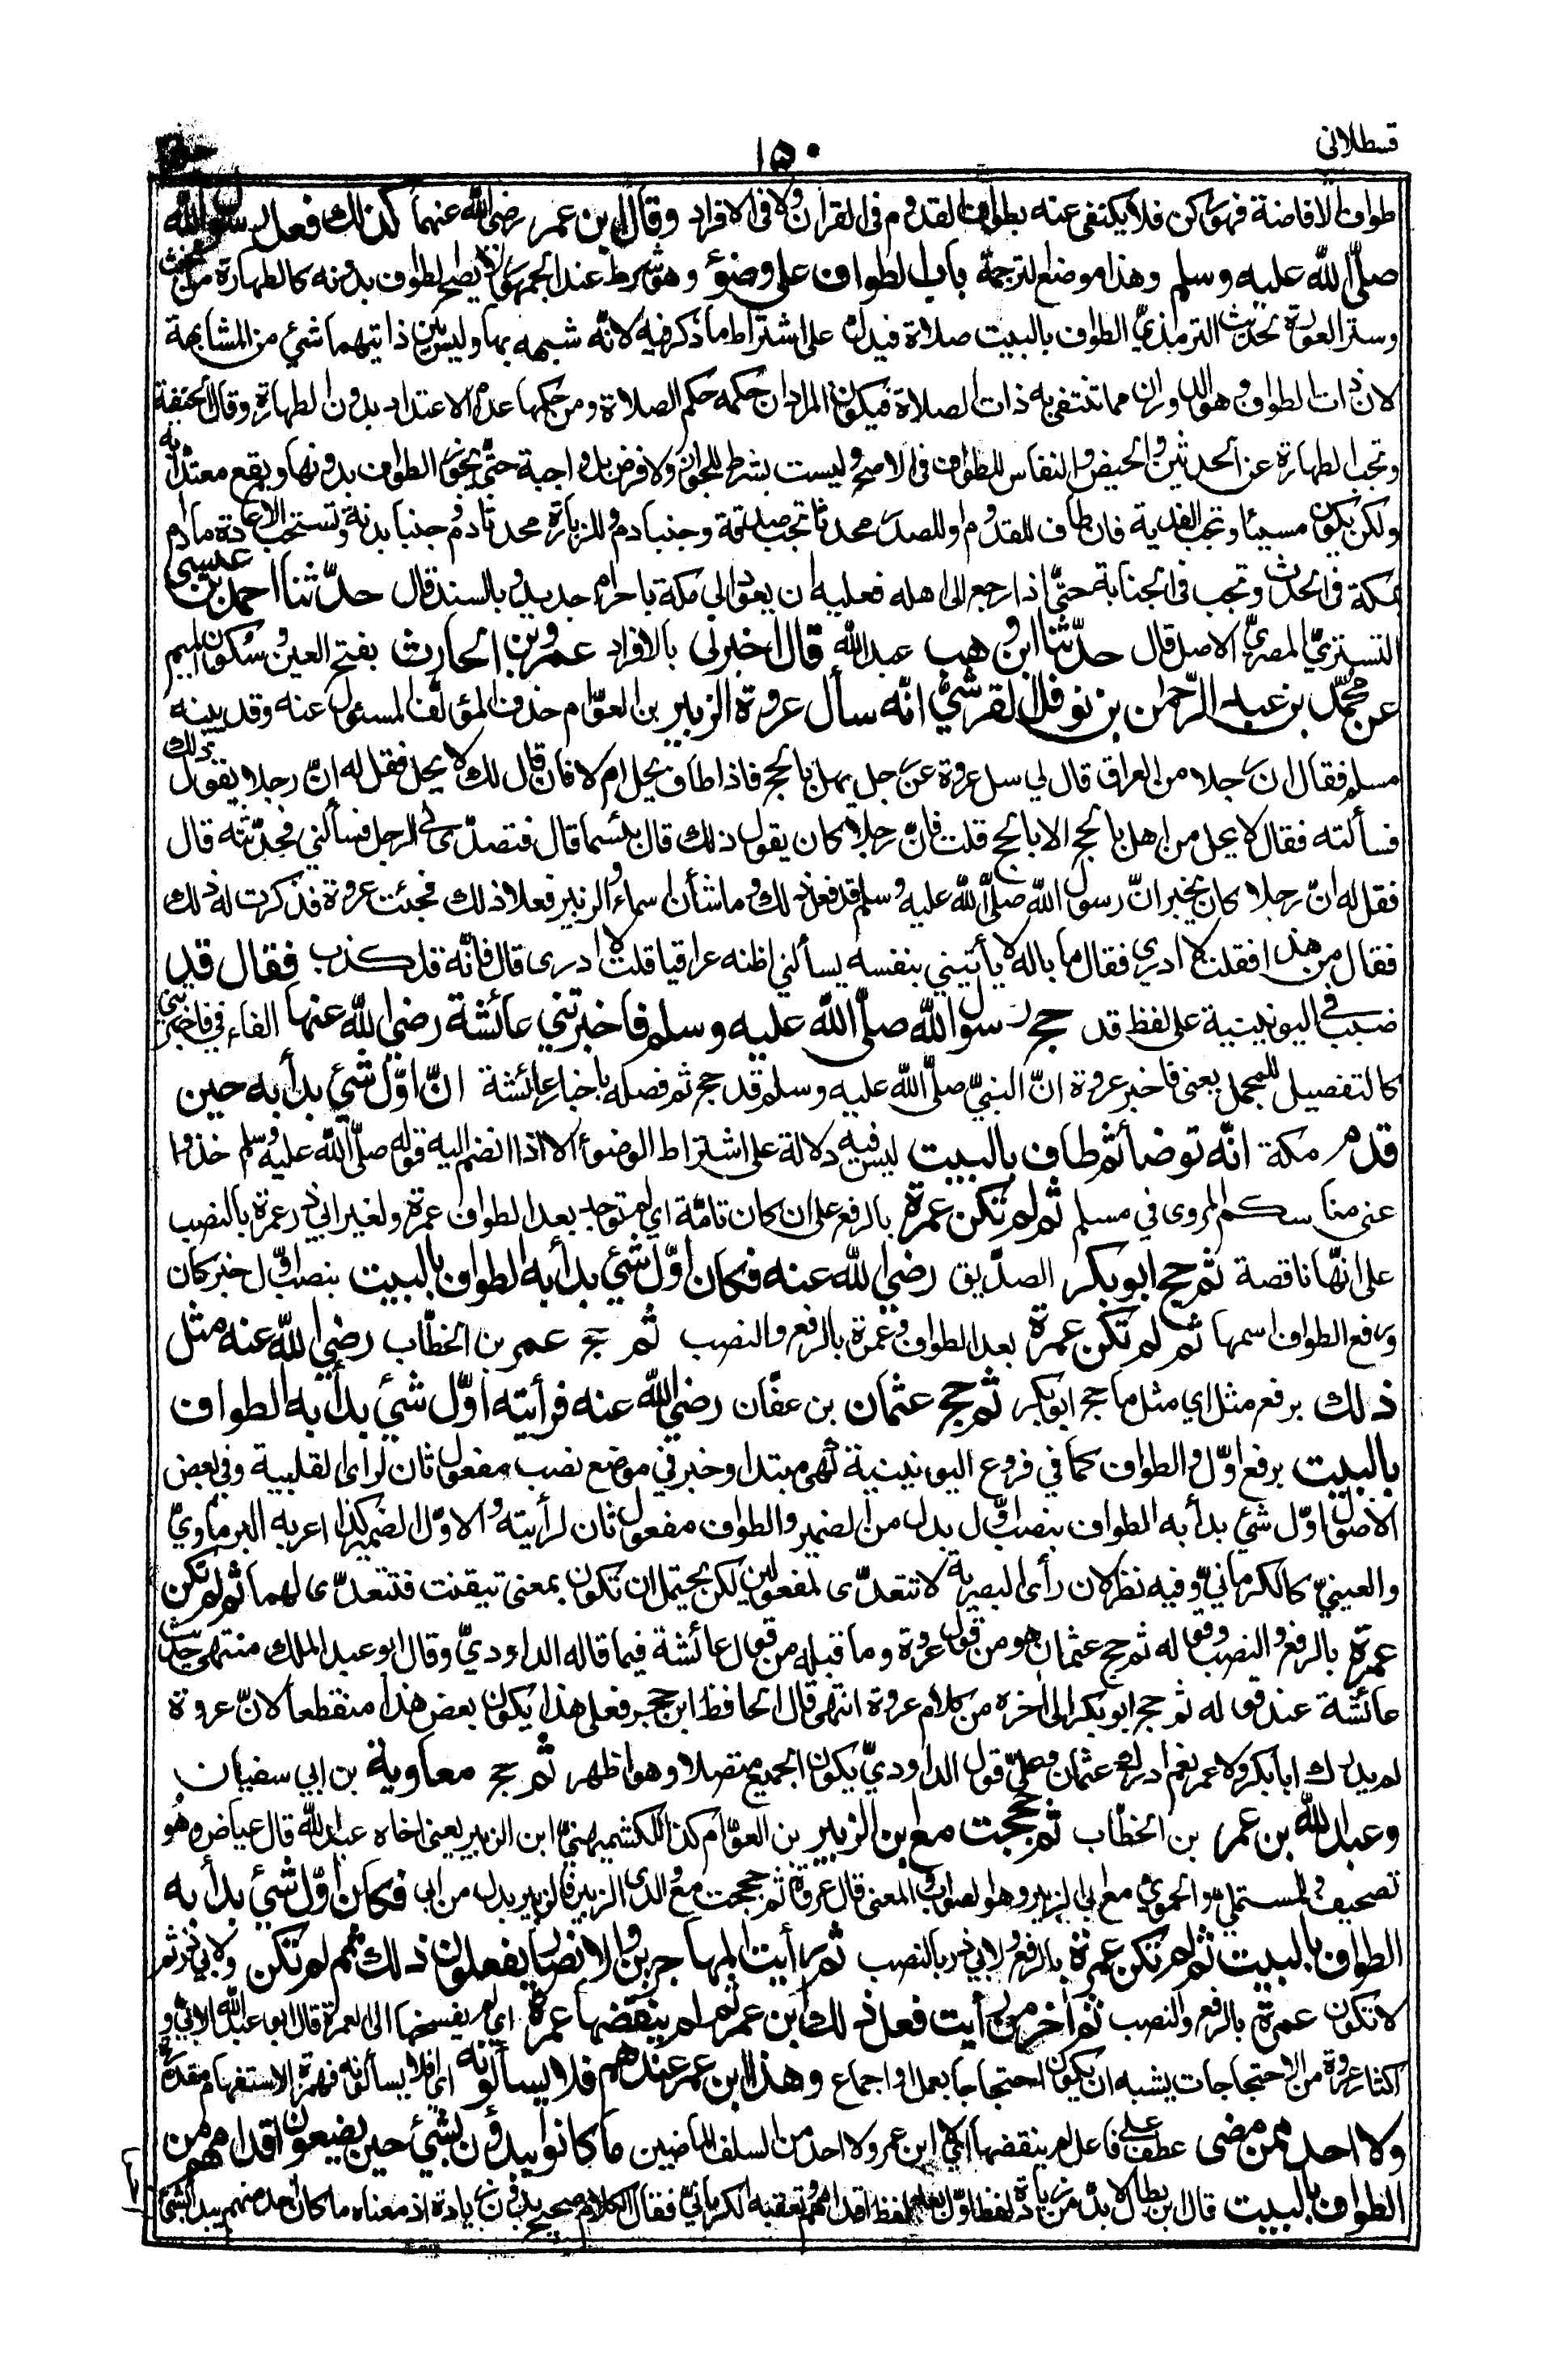 قسطلاني
١٥٠
طواف الافاضة فهو ركن فلا يكتفى عنه بطواف القدوم في القران ولا في الافراد وقال ابن عمر رضي الله عنهما كذلك فعل رسول الله
صلّى الله عليه وسلم وهذا موضع الترجمة باب الطواف على وضوٴ وهو شرط عند الجمهور لا يصح الطواف بدونه كالطهارة من الخبث
وستر العورة لحديث الترمذيّ الطواف بالبيت صلاة فيدل على اشتراط ما ذكر فيه لانّه شبهه بها وليس بين ذاتيهما شيٴ من المشابهة
لان ذات الطواف وهو الدوران مما تنتفي به ذات الصلاة فيكون المراد ان حكمه حكم الصلاة ومن حكمها عدم الاعتداد بدون الطهارة وقال الحنفية
وتجب الطهارة عن الحدثين والحيض والنفاس للطواف في الاصح وليست بشرط للجواز ولا فرض بل واجبة حتّى يجوز الطواف بدونها ويقع معتدّا به
ولكن يكون مسيئا وتجب الفدية فان طاف للقدوم او للصدر محدثا تجب صدقة وجنبا دم وللزيارة محدثا دم وجنبا بدنة وتستحب الاعادة ما دام
بمكة في الحدث وتجب في الجنابة حتّى اذا رجع الى اهله فعليه ان يعود الى مكة باحرام جديد وبالسند قال حدّثنا احمد بن عيسى
التستريّ المصريّ الاصل قال حدّثنا ابن وهب عبد الله قال اخبرني بالافراد عمرو بن الحارث بفتح العين وسكون الميم
عن محمّد بن عبد الرّحمٰن بن نوفل القرشيّ انّه سأل عروة بن الزبير بن العوّام حذف المؤلّف المسئول عنه وقد بينه
مسلم فقال ان رجلا من العراق قال لي سل عروة عن رجل يهل بالحج فاذا طاف يحل ام لا فان قال لك لا يحل فقل له انّ رجلا يقول ذلك
فسألته فقال لا يحل من اهل بالحج الا بالحج قلت فانّ رجلا كان يقول ذلك قال بئسما قال فتصدّى لي الرجل فسألني فحدّثته قال
فقل له انّ رجلا كان يخبر انّ رسول الله صلّى الله عليه وسلم قد فعل ذلك وما شأن اسماء والزبير فعلا ذلك فجئت عروة فذكرت له ذلك
فقال من هذا فقلت لا ادري فقال ما باله لا يأتيني بنفسه يسألني اظنه عراقيا قلت لا ادرى قال فانّه قد كذب فقال قد
ضبب في اليونينية على لفظ قد حج رسول الله صلّى الله عليه وسلم فاخبرتني عائشة رضي الله عنها الفاء في فاخبرتني
كالتفصيل للمجمل يعني فاخبر عروة انّ النبيّ صلّى الله عليه وسلم قد حج ثم فصله باخبار عائشة انّ اوّل شيٴ بدأ به حين
قدم مكة انّه توضأ ثم طاف بالبيت ليس فيه دلالة على اشتراط الوضوٴ الا اذا انضم اليه قوله صلّى الله عليه وسلم خذوا
عني مناسككم المروى في مسلم ثم لم تكن عمرة بالرفع على ان كان تامّة اي لم توجد بعد الطواف عمرة ولغير ابي ذر عمرة بالنصب
على انّها ناقصة ثم حج ابو بكر الصدّيق رضي الله عنه فكان اوّل شيٴ بدأ به الطواف بالبيت بنصب اوّل خبر كان
ورفع الطواف اسمها ثم لم تكن عمرة بعد الطواف وعمرة بالرفع والنصب ثم حج عمر بن الخطّاب رضي الله عنه مثل
ذلك برفع مثل اي مثل ما حج ابو بكر ثم حج عثمان بن عفّان رضي الله عنه فرأيته اوّل شيٴ بدأ به الطواف
بالبيت برفع اوّل والطواف كما في فروع اليونينية فهو مبتدا وخبر في موضع نصب مفعول ثان لرأى القلبية وفي بعض
الاصول اوّل شيٴ بدأ به الطواف بنصب اوّل بدل من الضمير والطواف مفعول ثان لرأيته والاوّل الضمير كذا اعربه البرماويّ
والعينيّ كالكرمانيّ وفيه نظر لان رأى البصرية لا تتعدّى لمفعولين لكن يحتمل ان تكون بمعنى تيقنت فتتعدّى لهما ثم لم تكن
عمرة بالرفع والنصب وقوله ثم حج عثمان هو من قول عروة وما قبله من قول عائشة فيما قاله الداوديّ وقال ابو عبد الملك منتهى حديث
عائشة عند قوله ثم حج ابو بكر الى اٰخره من كلام عروة انتهى قال الحافظ ابن حجر فعلى هذا يكون بعض هذا منقطعا لانّ عروة
لم يدرك ابا بكر ولا عمر نعم ادرك عثمان وعلى قول الداوديّ يكون الجميع متصلا وهو اظهر ثم حج معاوية بن ابي سفيان
وعبد الله بن عمر بن الخطّاب ثم حججت مع ابن الزبير بن العوّام كذا للكشميهنيّ ابن الزبير يعني اخاه عبد الله قال عياض وهو
تصحيف وللمستمليّ والحمويّ مع ابي الزبير وهو الصواب والمعنى قال عروة ثم حججت مع والدى الزبير فالزبير بدل من ابي فكان اوّل شيٴ بدأ به
الطواف بالبيت ثم لم تكن عمرة بالرفع ولابي ذر بالنصب ثم رأيت المهاجرين والانصار يفعلون ذلك ثم لم تكن ولابي ذر ثم
لا تكون عمرة بالرفع والنصب ثم اٰخر من رأيت فعل ذلك ابن عمر ثم لم ينقضها عمرة اي لم يفسخها الى العمرة قال ابو عبد الله الابيّ و
اكثار عروة من الاحتجاجات يشبه ان يكون احتجاجا بعمل او اجماع وهذا ابن عمر عندهم فلا يسألونه اي افلا يسألونه فهمزة الاستفهام مقدرة
ولا احد ممن مضى عطف على فاعل لم ينقضها اي لا ابن عمر ولا احد من السلف الماضين ما كانوا يبدؤن بشيٴ حين يضعون اقدامهم من
الطواف بالبيت قال ابن بطال لا بدّ من زيادة لفظ اوّل بعد لفظ اقدامهم وتعقبه الكرمانيّ فقال الكلام صحيح بدون زيادة اذ معناه ما كان احد منهم يبدأ بشيٴ